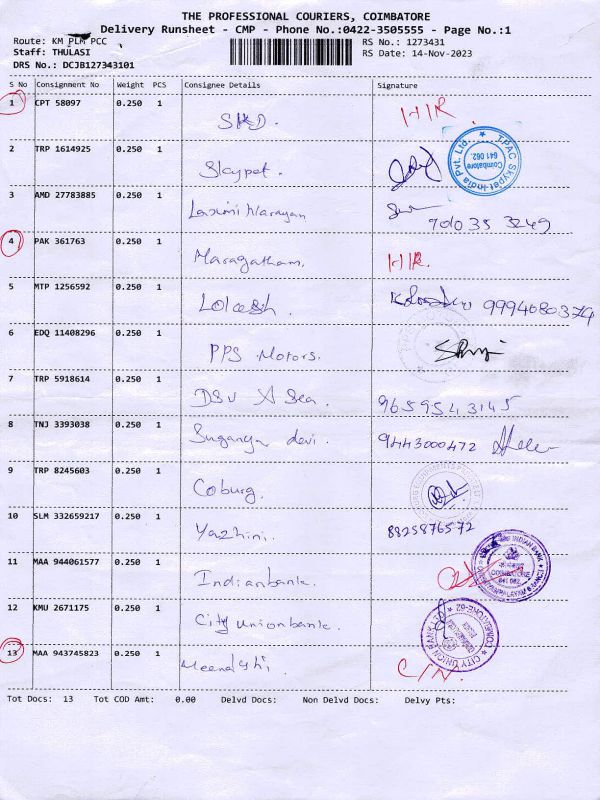 THE PROFESSIONAL COURIERS, COIMBATORE
Delivery Runsheet - CMP - Phone No.:0422-3505555 - Page No.:1
Route: KM PLM PCC RS No.: 1273431
Staff: THULASI RS Date: 14-Nov-2023
DRS No.: DCJB127343101
S No Consignment No Weight PCS Consignee Details Signature
1 CPT 58097 0.250 1 H/R
2 TRP 1614925 0.250 1 Skypet. T.PAC Skypet-India Pvt. Ltd. Coimbatore 641 062.
3 AMD 27783885 0.250 1 Laxmi Narayan
4 PAK 361763 0.250 1 Maragatham. H/R.
5 MTP 1256592 0.250 1 Lokesh 9994680374
6 EDQ 11408296 0.250 1 PPS Motors.
7 TRP 5918614 0.250 1 9659543145
8 TNJ 3393038 0.250 1 Suganya devi. 9443000472
9 TRP 8245603 0.250 1 Coburg.
10 SLM 332659217 0.250 1 Yazhini. 8825876572
11 MAA 944061577 0.250 1 Indianbank. INDIAN BANK COIMBATORE 641 062
12 KMU 2671175 0.250 1 City unionbank. CITY UNION BANK LTD COIMBATORE-62
13 MAA 943745823 0.250 1 Meenakshi C/N.
Tot Docs: 13 Tot COD Amt: 0.00 Delvd Docs: Non Delvd Docs: Delvy Pts: